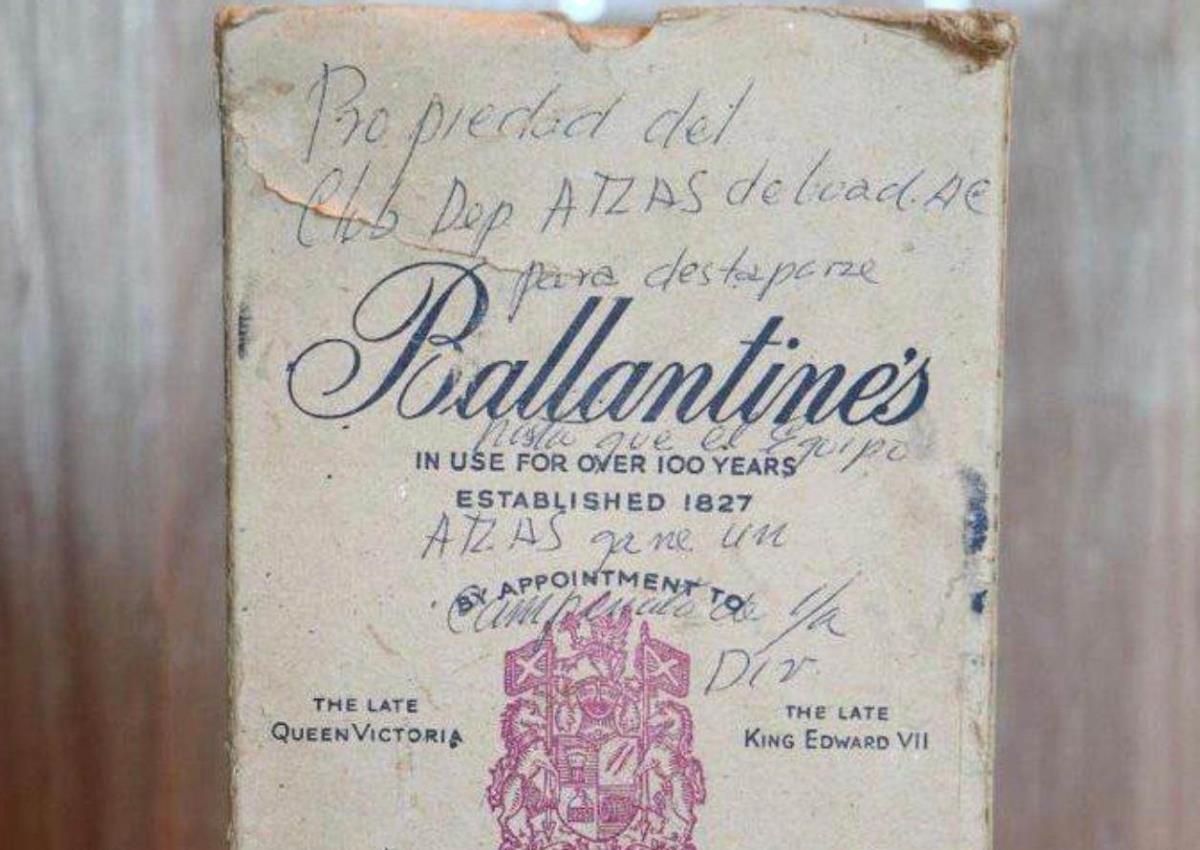 Propiedad del
Club Dep ATZAS de
para destaparze
Ballantine's
hasta que el Equipo
IN USE FOR OVER 100 YEARS
ESTABLISHED 1827
ATZAS gane un
BY APPOINTMENT TO
Campeonato de 1/a
Div.
THE LATE
QUEEN VICTORIA
THE LATE
KING EDWARD VII